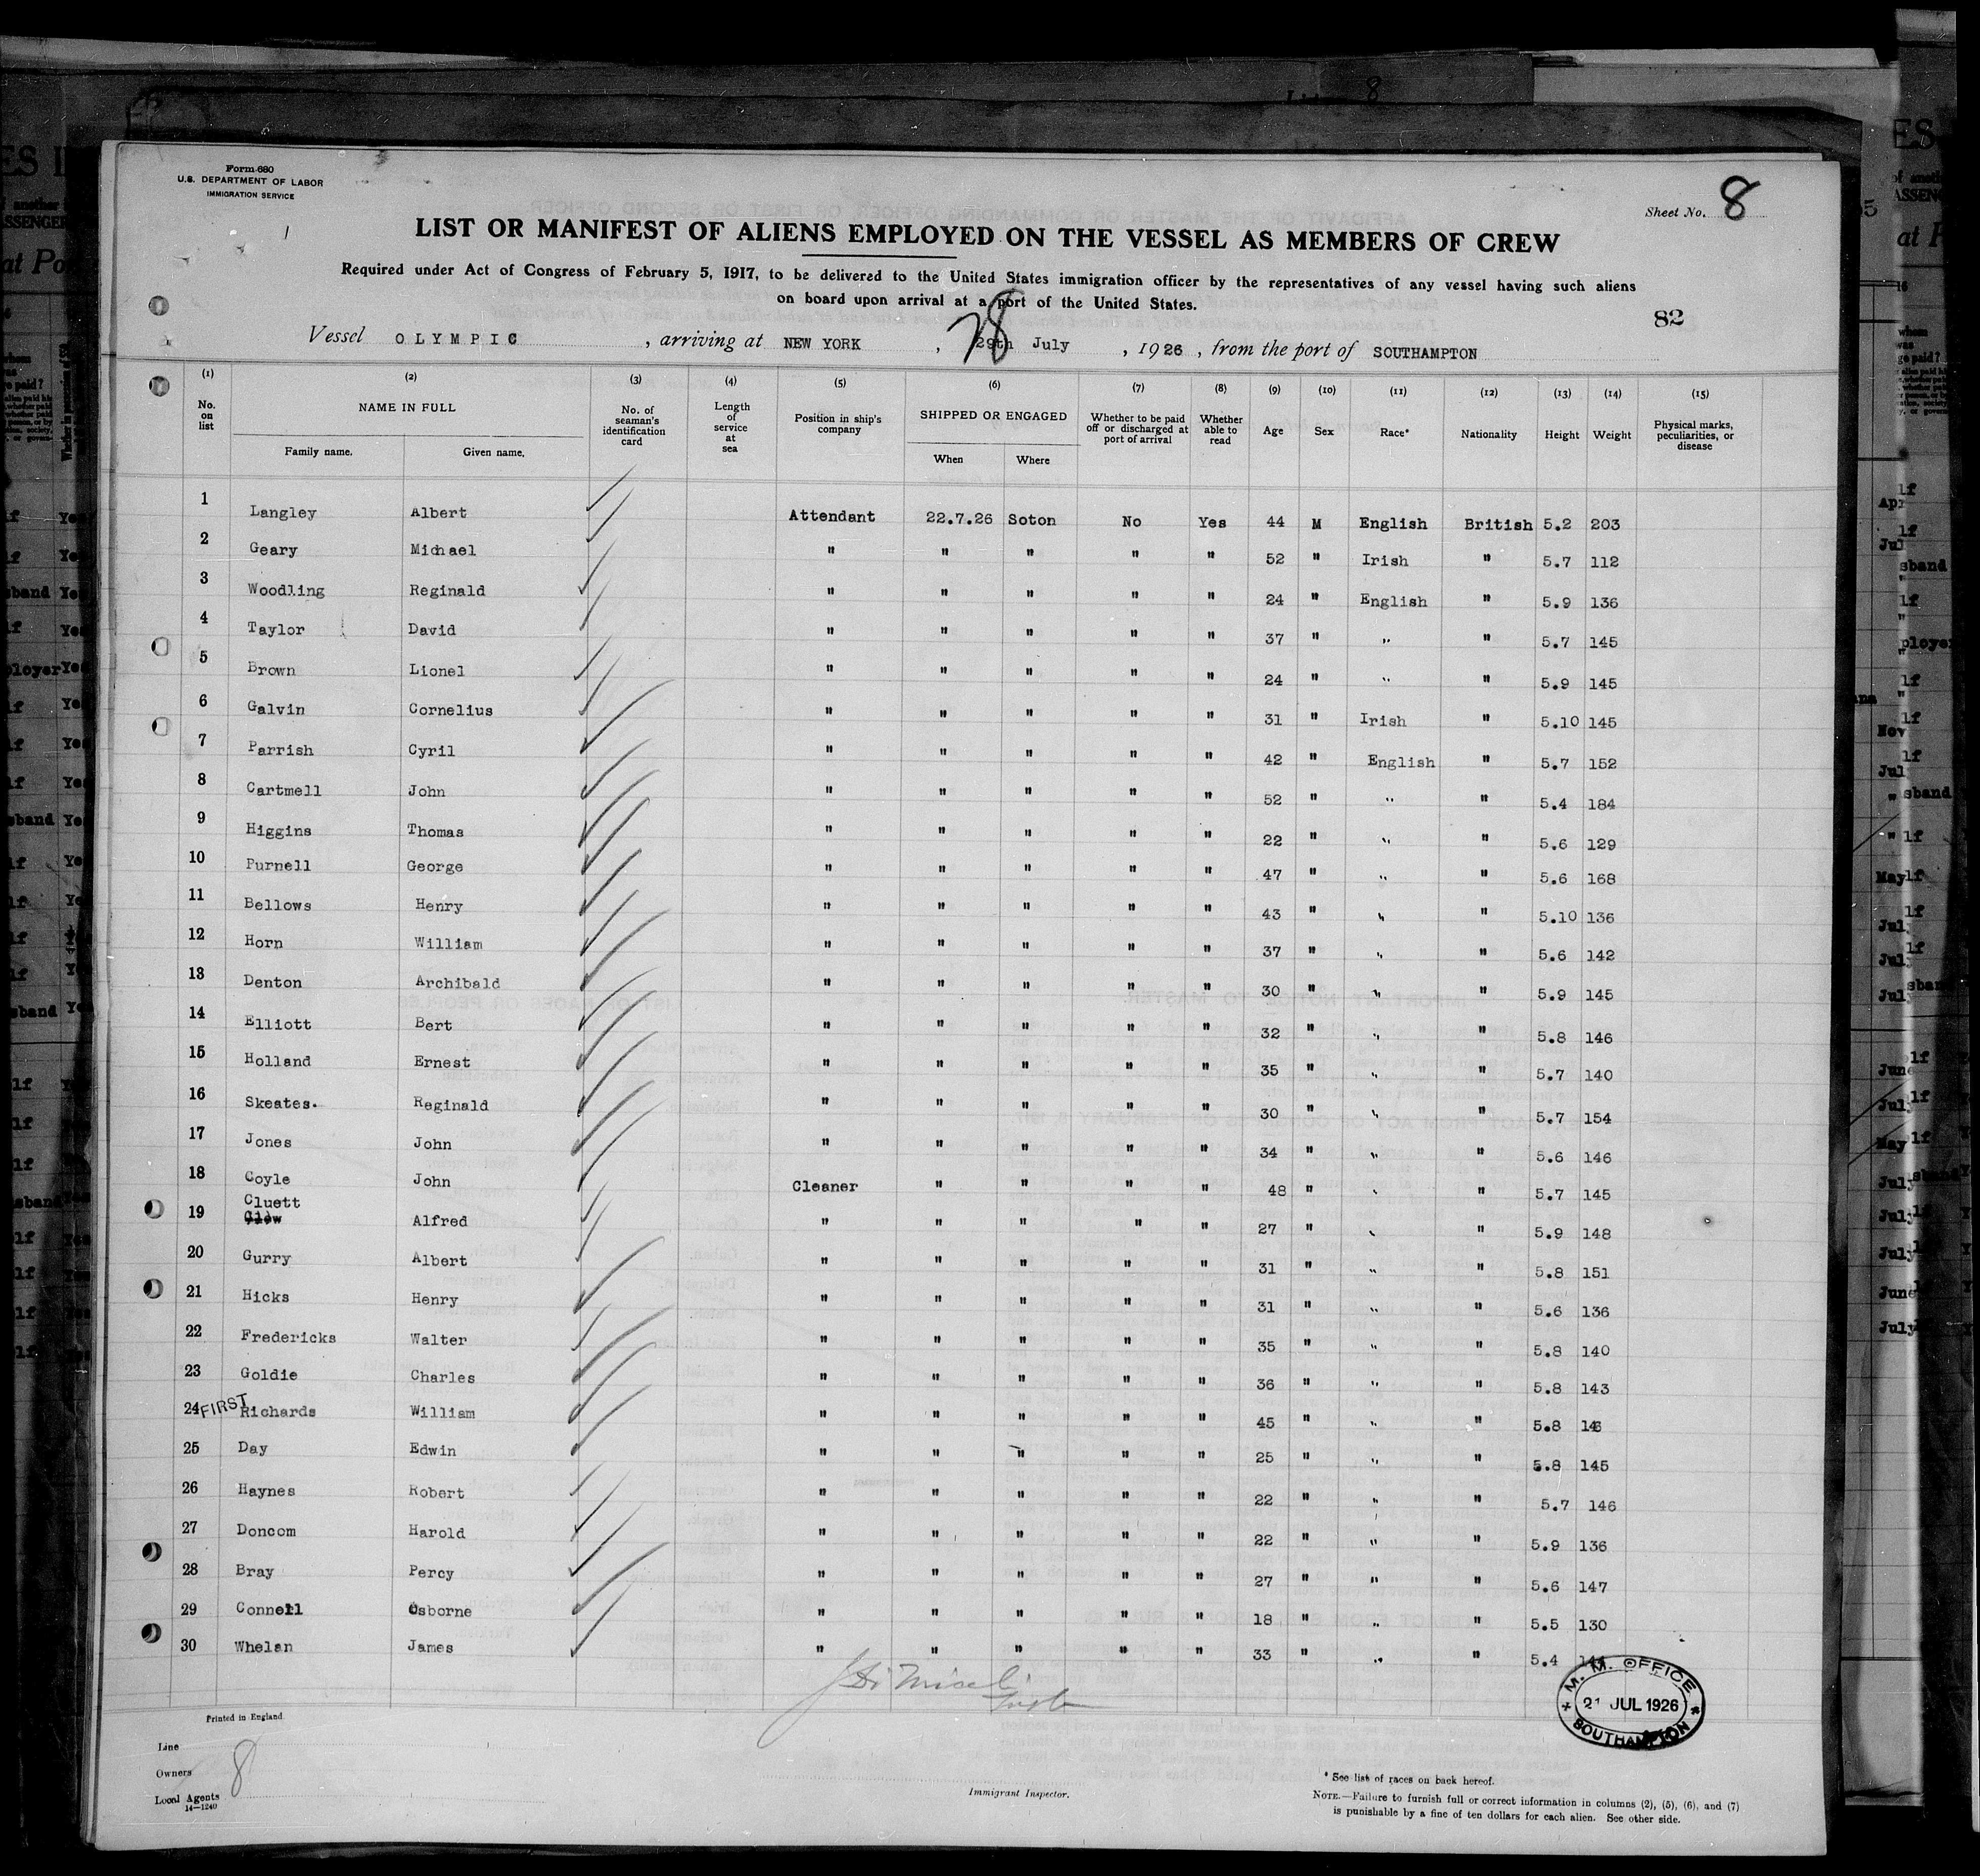 Form 680
U.S. DEPARTMENT OF LABOR
IMMIGRATION SERVICE
Sheet No. 8
LIST OR MANIFEST OF ALIENS EMPLOYED ON THE VESSEL AS MEMBERS OF CREW
Required under Act of Congress of February 5, 1917, to be delivered to the United States immigration officer by the representatives of any vessel having such aliens
on board upon arrival at a port of the United States.
82
Vessel OLYMPIC , arriving at NEW YORK , 28 29th July , 1926 , from the port of SOUTHAMPTON
(1) (2) (3) (4) (5) (6) (7) (8) (9) (10) (11) (12) (13) (14) (15)
No. on list NAME IN FULL Family name. Given name. No. of seaman's identification card Length of service at sea Position in ship's company SHIPPED OR ENGAGED When Where Whether to be paid off or discharged at port of arrival Whether able to read Age Sex Race* Nationality Height Weight Physical marks, peculiarities, or disease
1 Langley Albert Attendant 22.7.26 Soton No Yes 44 M English British 5.2 203
2 Geary Michael " " " " " 52 " Irish " 5.7 112
3 Woodling Reginald " " " " " 24 " English " 5.9 136
4 Taylor David " " " " " 37 " " " 5.7 145
5 Brown Lionel " " " " " 24 " " " 5.9 145
6 Galvin Cornelius " " " " " 31 " Irish " 5.10 145
7 Parrish Cyril " " " " " 42 " English " 5.7 152
8 Cartmell John " " " " " 52 " " " 5.4 184
9 Higgins Thomas " " " " " 22 " " " 5.6 129
10 Purnell George " " " " " 47 " " " 5.6 168
11 Bellows Henry " " " " " 43 " " " 5.10 136
12 Horn William " " " " " 37 " " " 5.6 142
13 Denton Archibald " " " " " 30 " " " 5.9 145
14 Elliott Bert " " " " " 32 " " " 5.8 146
15 Holland Ernest " " " " " 35 " " " 5.7 140
16 Skeates. Reginald " " " " " 30 " " " 5.7 154
17 Jones John " " " " " 34 " " " 5.6 146
18 Coyle John Cleaner " " " " 48 " " " 5.7 145
19 Cluett Alfred " " " " " 27 " " " 5.9 148
20 Gurry Albert " " " " " 31 " " " 5.8 151
21 Hicks Henry " " " " " 31 " " " 5.6 136
22 Fredericks Walter " " " " " 35 " " " 5.8 140
23 Goldie Charles " " " " " 36 " " " 5.8 143
24 FIRST Richards William " " " " " 45 " " " 5.8
25 Day Edwin " " " " " 25 " " " 5.8 145
26 Haynes Robert " " " " " 22 " " " 5.7 146
27 Doncom Harold " " " " " 22 " " " 5.9 136
28 Bray Percy " " " " " 27 " " " 5.6 147
29 Connell Osborne " " " " " 18 " " " 5.5 130
30 Whelan James " " " " " 33 " " " 5.4
M. M. OFFICE
21 JUL 1926
SOUTHAMPTON
Printed in England
Line
Owners 8
Local Agents
14—1240
Immigrant Inspector.
* See list of races on back hereof.
NOTE.—Failure to furnish full or correct information in columns (2), (5), (6), and (7)
is punishable by a fine of ten dollars for each alien. See other side.